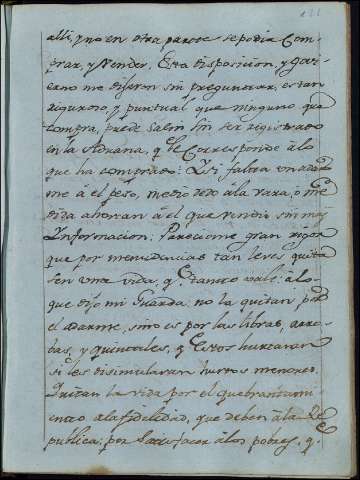 121
alli, y no en otra parte se podia Com-
prar, y Vender. Esta disposicion, y gov-
erno me dijeron sin preguntar, es tan
riguroso, y puntual que ninguno que
compra, puede salir sin ser registrado
en la Aduana, q. le Corresponde â lo
que ha comprado: Y si falta un adar-
me â el peso, medio dedo â la vara, ô me-
dida ahorcan â el que vendiò sin mas
Informacion: Pareciome gran rigor
que por menudencias tan leves quita-
sen una vida, y tanto vale: â lo
que dijo mi Guarda: no la quitan por
el adarme, sino es por las libras, arro-
bas, y quintales, q. Estos hurtaran
si les disimularan hurtos menores.
Quitan la vida por el quebrantami-
ento â la fidelidad, que deben â la Re-
publica: por Satisfacer â los pobres, q.